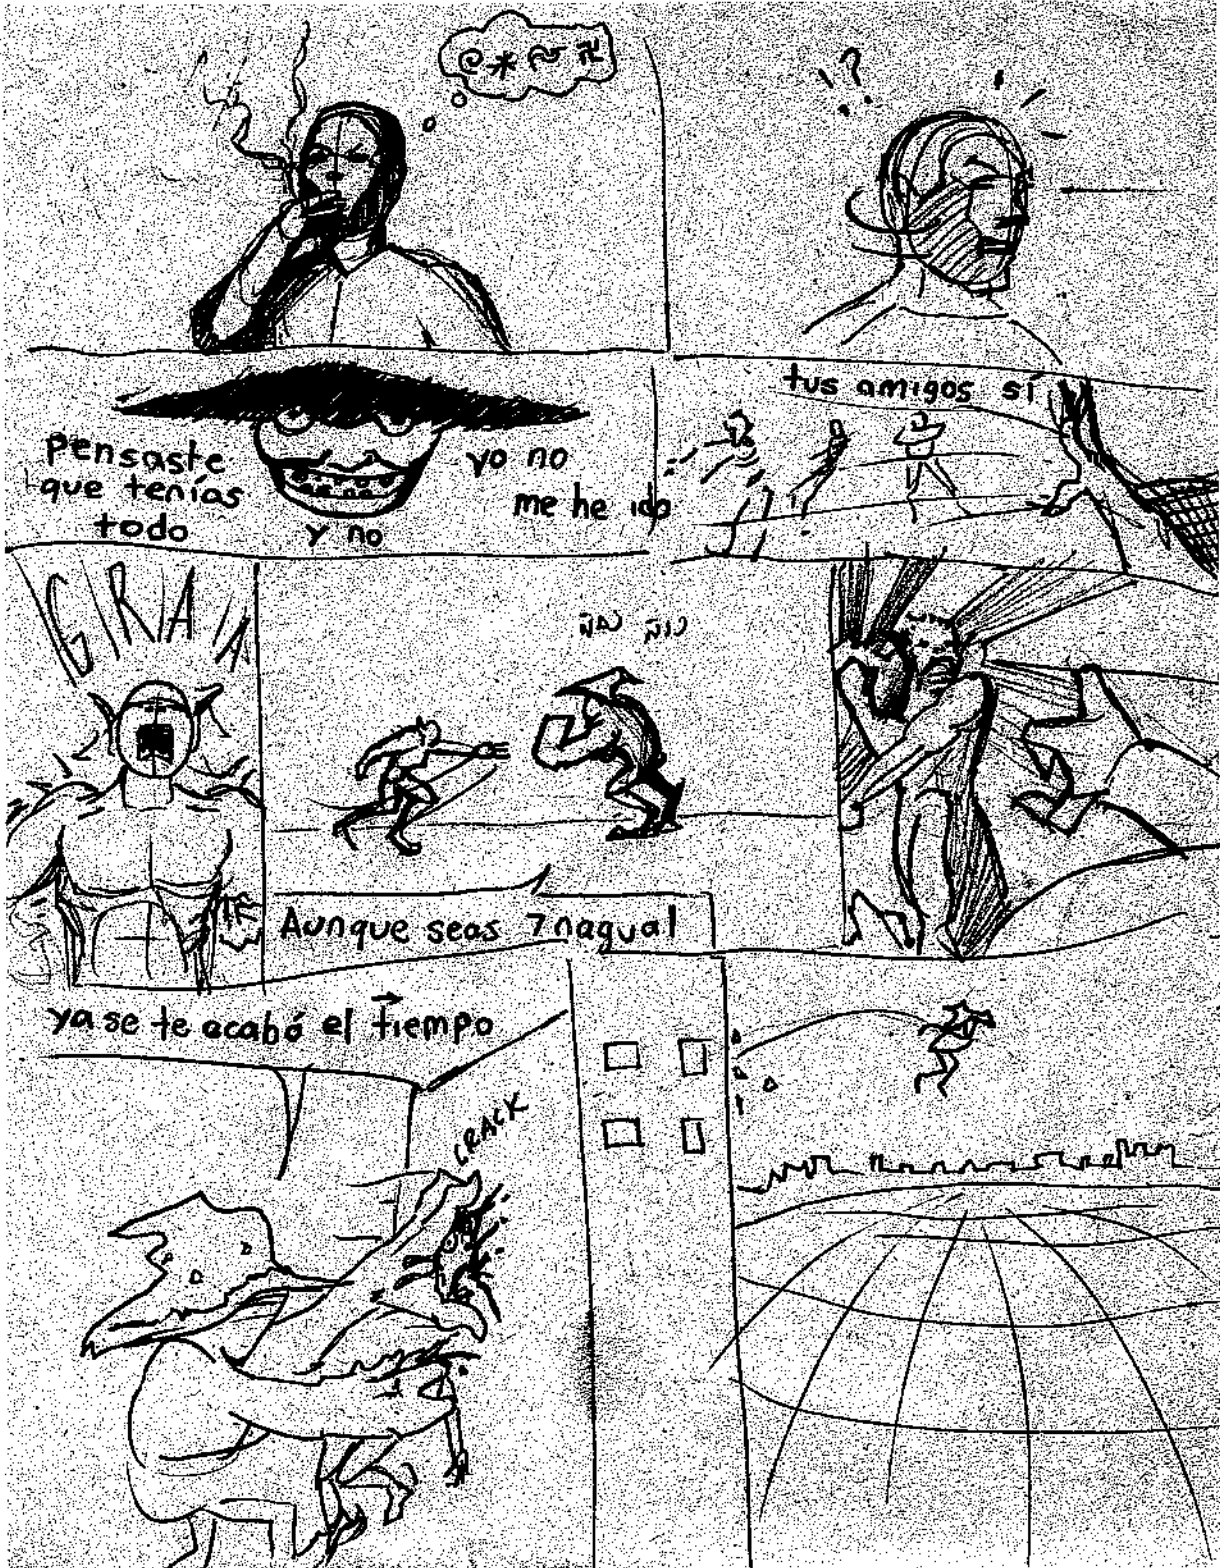 @*
!?
pensaste
que tenías
todo
y no
yo no
me he ido
tus amigos sí
GRAA
Aunque seas 7 nagual
ya se te acabó el tiempo
CRACK